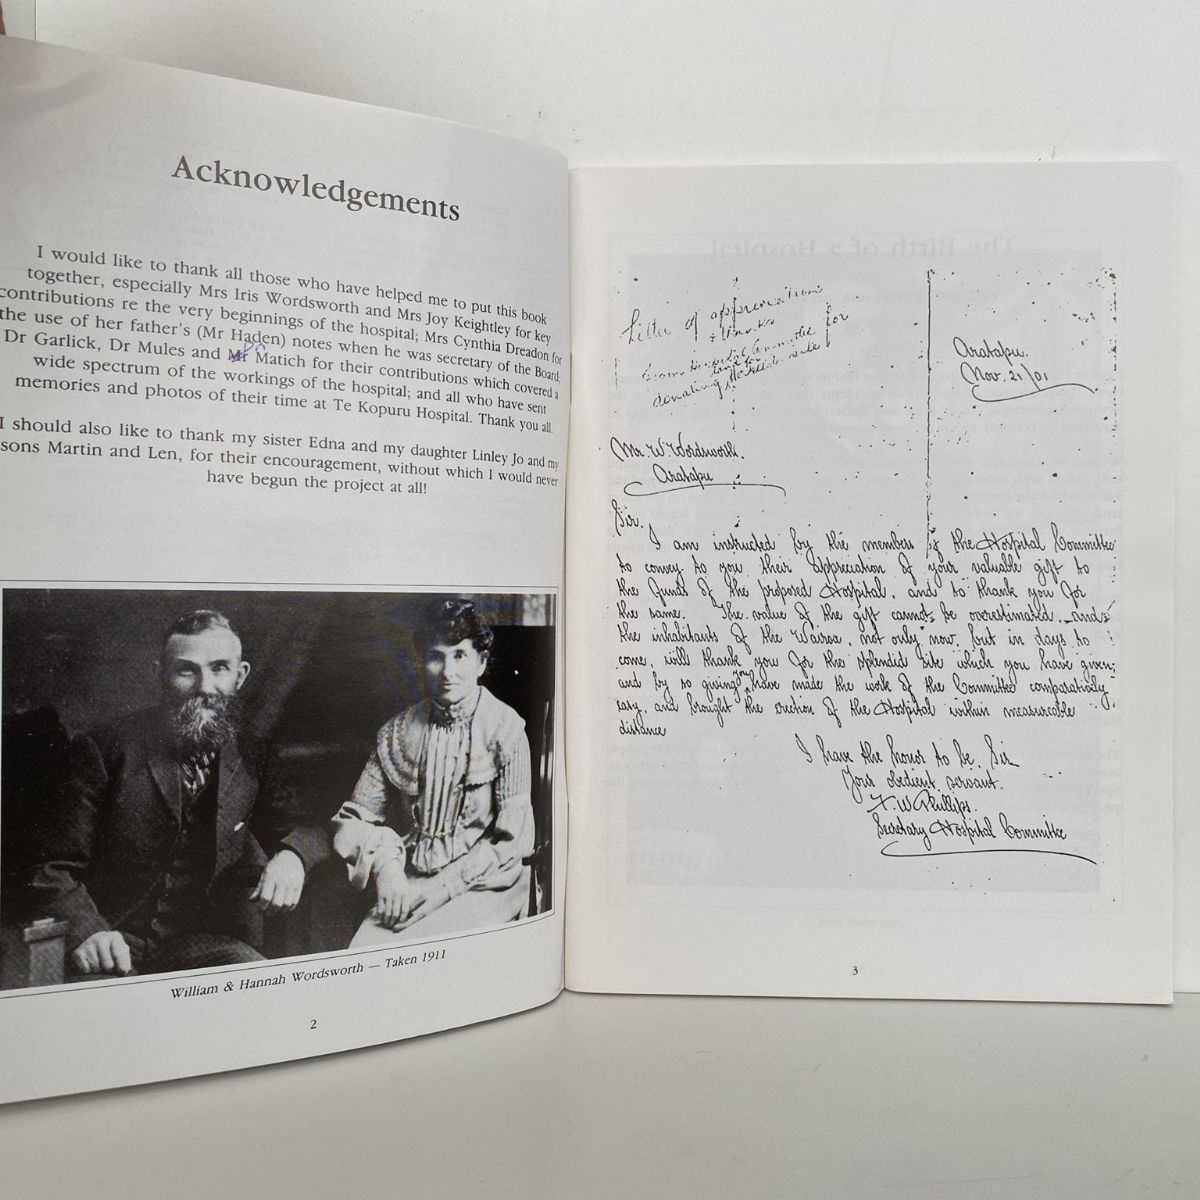 Acknowledgements
I would like to thank all those who have helped me to put this book
together, especially Mrs Iris Wordsworth and Mrs Joy Keightley for key
contributions re the very beginnings of the hospital; Mrs Cynthia Dreadon for
the use of her father's (Mr Haden) notes when he was secretary of the Board;
Dr Garlick, Dr Mules and Mr Dr Matich for their contributions which covered a
wide spectrum of the workings of the hospital; and all who have sent
memories and photos of their time at Te Kopuru Hospital. Thank you all.
I should also like to thank my sister Edna and my daughter Linley Jo and my
sons Martin and Len, for their encouragement, without which I would never
have begun the project at all!
William & Hannah Wordsworth — Taken 1911
2
Letter of appreciation
from Hospital Committee for
donating Hospital site
Aratapu.
Nov. 21/01
Mr W. Wordsworth.
Aratapu
Sir.
I am instructed by the members of the Hospital Committee
to convey to you their appreciation of your valuable gift to
the funds of the proposed Hospital, and to thank you for
the same. The value of the gift cannot be overestimated, and
the inhabitants of the Wairoa, not only now, but in days to
come, will thank you for the splendid site which you have given;
and by so giving you have made the work of the Committee comparatively
easy, and brought the erection of the Hospital within measureable
distance
I have the honor to be, Sir
Yours obedient servant.
F W Phillips.
Secretary Hospital Committee
3
The Birth of a Hospital